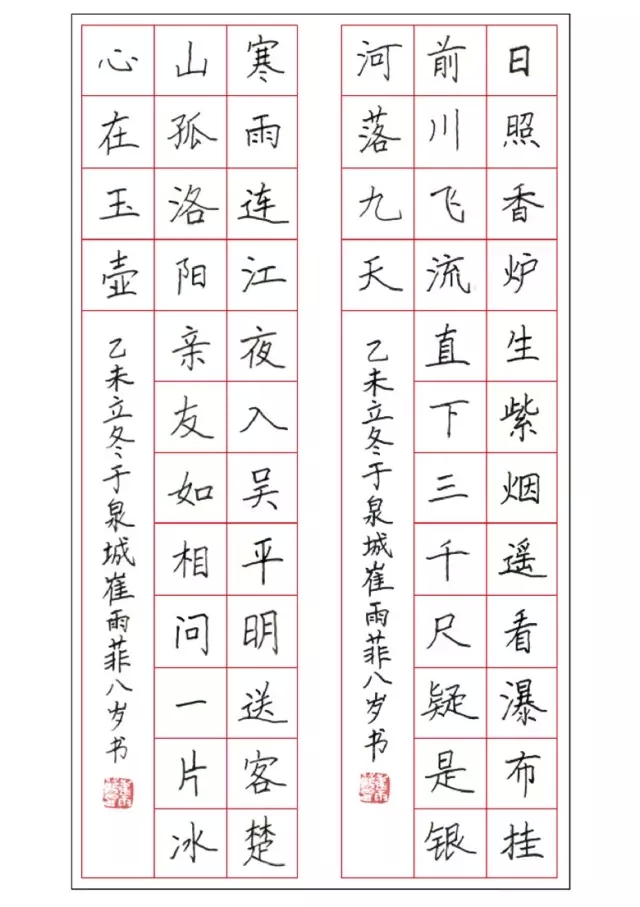 日照香炉生紫烟遥看瀑布挂
前川飞流直下三千尺疑是银
河落九天
乙未立冬于泉城崔雨菲八岁书
寒雨连江夜入吴平明送客楚
山孤洛阳亲友如相问一片冰
心在玉壶
乙未立冬于泉城崔雨菲八岁书